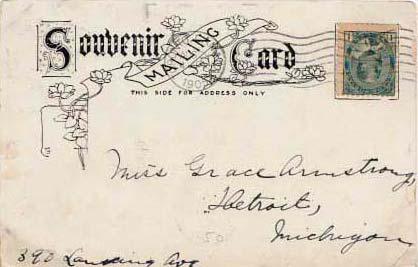 Souvenir Card
MAILING
190
THIS SIDE FOR ADDRESS ONLY
Miss Grace Armstrong,
Detroit,
Michigan
50
390 Lansing Ave